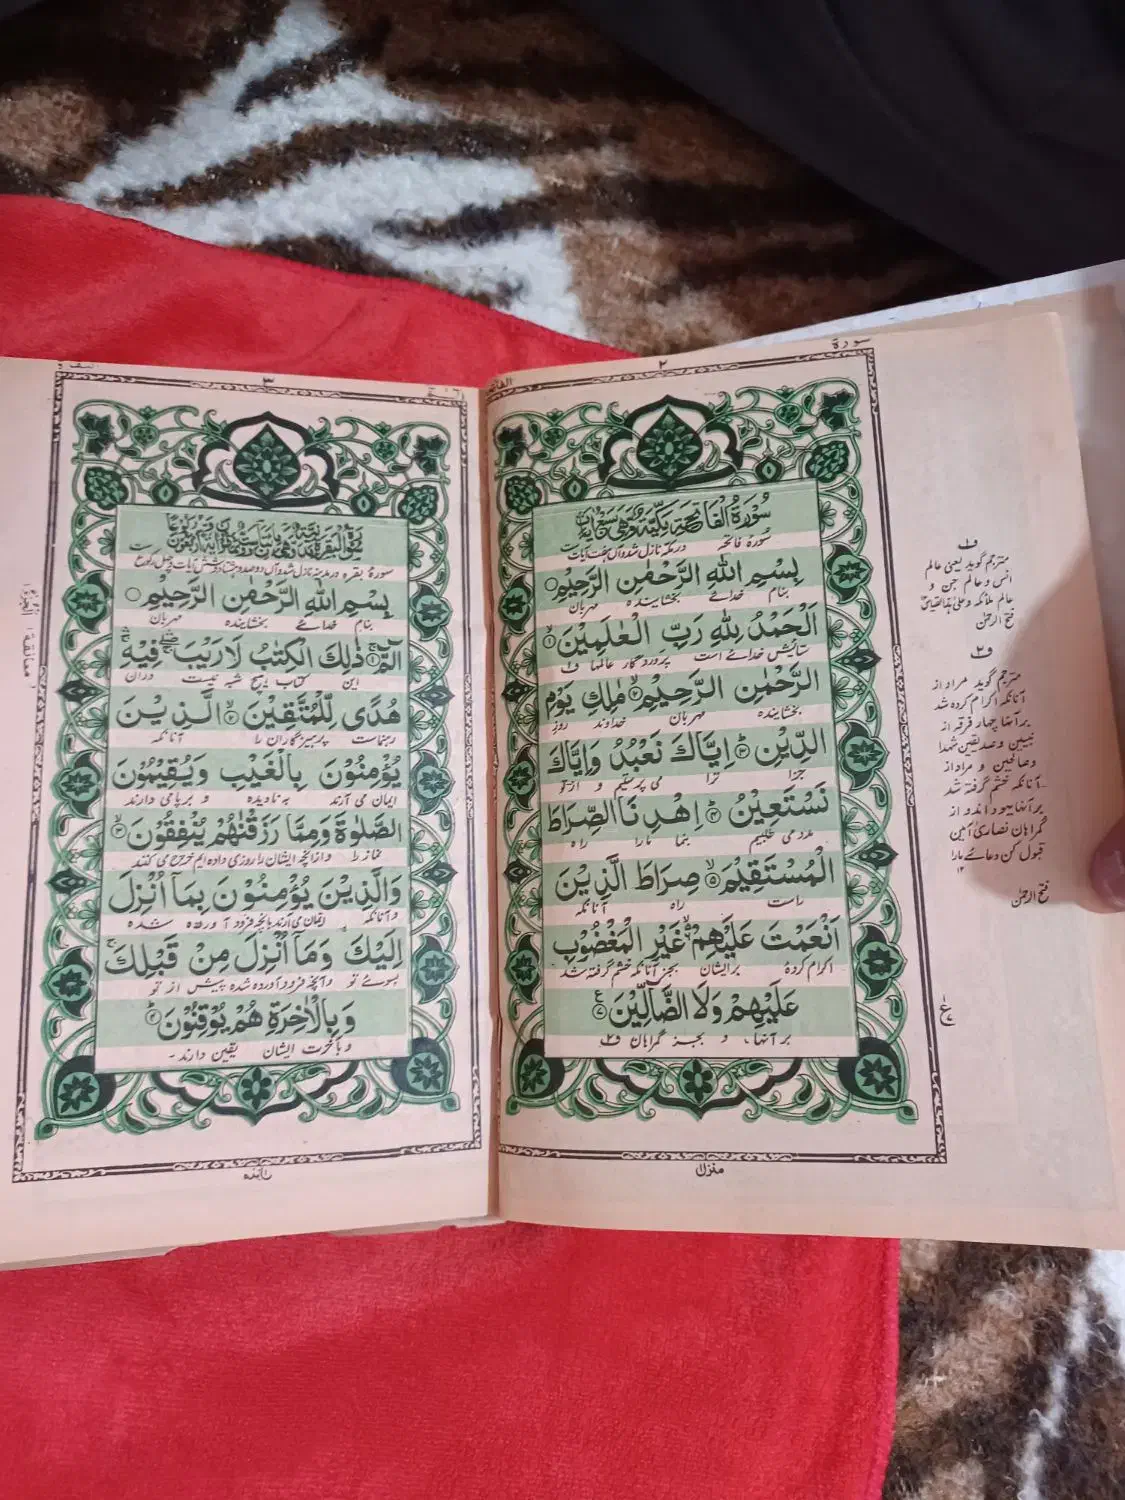 سورة
٢
سُوْرَةُ الْفَاتِحَةِ مَكِّيَّةٌ وَهِيَ سَبْعُ اٰيَاتٍ
سورهٔ فاتحه در مکه نازل شد و آں هفت آیات ست
بِسْمِ اللهِ الرَّحْمٰنِ الرَّحِيْمِ
بنام خدائے بخشاینده مهربان
اَلْحَمْدُ لِلّٰهِ رَبِّ الْعٰلَمِيْنَ ١
ستایش خدائے است پروردگار عالمها ف۱
الرَّحْمٰنِ الرَّحِيْمِ ٢ مٰلِكِ يَوْمِ
بخشاینده مهربان خداوند روز
الدِّيْنِ ٣ اِيَّاكَ نَعْبُدُ وَاِيَّاكَ
جزا ترا می پرستیم و از تو
نَسْتَعِيْنُ ٤ اِهْدِنَا الصِّرَاطَ
مدد می طلبیم بنما مارا راه
الْمُسْتَقِيْمَ ٥ صِرَاطَ الَّذِيْنَ
راست راه آنانکه
اَنْعَمْتَ عَلَيْهِمْ ٦ غَيْرِ الْمَغْضُوْبِ
اکرام کردهٔ برایشان بجز آنانکه خشم گرفته شد
عَلَيْهِمْ وَلَا الضَّآلِّيْنَ ٧
بر آنها، و بجز گمراہان ف۲
منزل
ف۱
مترجم گوید یعنی عالم
انس و عالم جن و
عالم ملائکه و علیٰ هذا القیاس
فتح الرحمٰن
ف۲
مترجم گوید مراد از
آنانکه اکرام کرده شد
بر آنها چهار فرقه اند
نبیین و صدیقین شهدا
و صالحین و مراد از
آنانکه خشم گرفته شد
بر آنها یهود اند و از
گمراہان نصاریٰ آمین
قبول کن دعائے مارا
۱۲
فتح الرحمٰن
٣
سورهٔ بقره در مدینه نازل شد و آں دو صد و هشتاد و شش آیات و چهل رکوع ست
بِسْمِ اللهِ الرَّحْمٰنِ الرَّحِيْمِ
بنام خدائے بخشاینده مهربان
الٓمّٓ ١ ذٰلِكَ الْكِتٰبُ لَا رَيْبَ فِيْهِ
این کتاب هیچ شبه نیست دران
هُدًى لِّلْمُتَّقِيْنَ ٢ الَّذِيْنَ
رهنماست پرهیزگاران را آنانکه
يُؤْمِنُوْنَ بِالْغَيْبِ وَيُقِيْمُوْنَ
ایمان می آرند به نادیده و برپا می دارند
الصَّلٰوةَ وَمِمَّا رَزَقْنٰهُمْ يُنْفِقُوْنَ ٣
نماز را و ازانچه ایشان را روزی داده ایم خرچ می کنند
وَالَّذِيْنَ يُؤْمِنُوْنَ بِمَآ اُنْزِلَ
و آنانکه ایمان می آرند بانچه فرود آورده شده
اِلَيْكَ وَمَآ اُنْزِلَ مِنْ قَبْلِكَ
بسوئے تو و آنچه فرود آورده شده پیش از تو
وَبِالْاٰخِرَةِ هُمْ يُوْقِنُوْنَ ٤
و بآخرت ایشان یقین دارند۔
معانقة ١